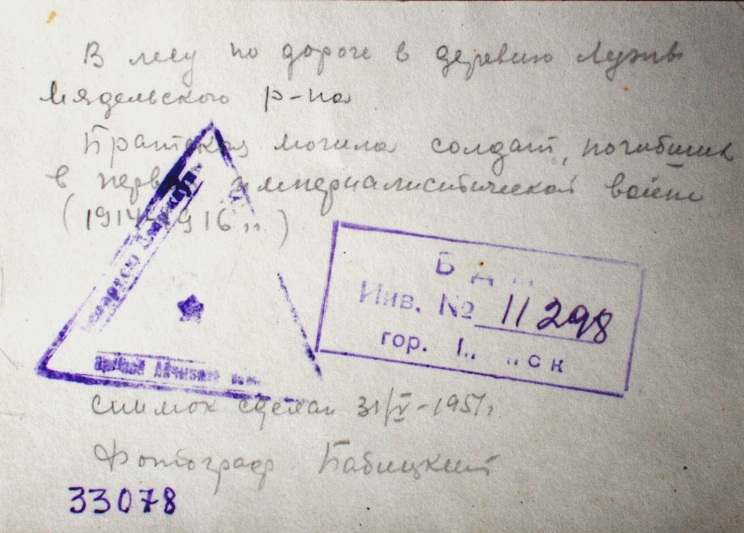 В лесу по дороге в деревню Лузы
Мядельского р-на
Братская могила солдат, погибших
в первой империалистической войне
(1914-1916 гг.)
Б
Инв. № 11298
гор.
снимок сделан 31/V-1951г.
Фотограф Бабицкий
33078